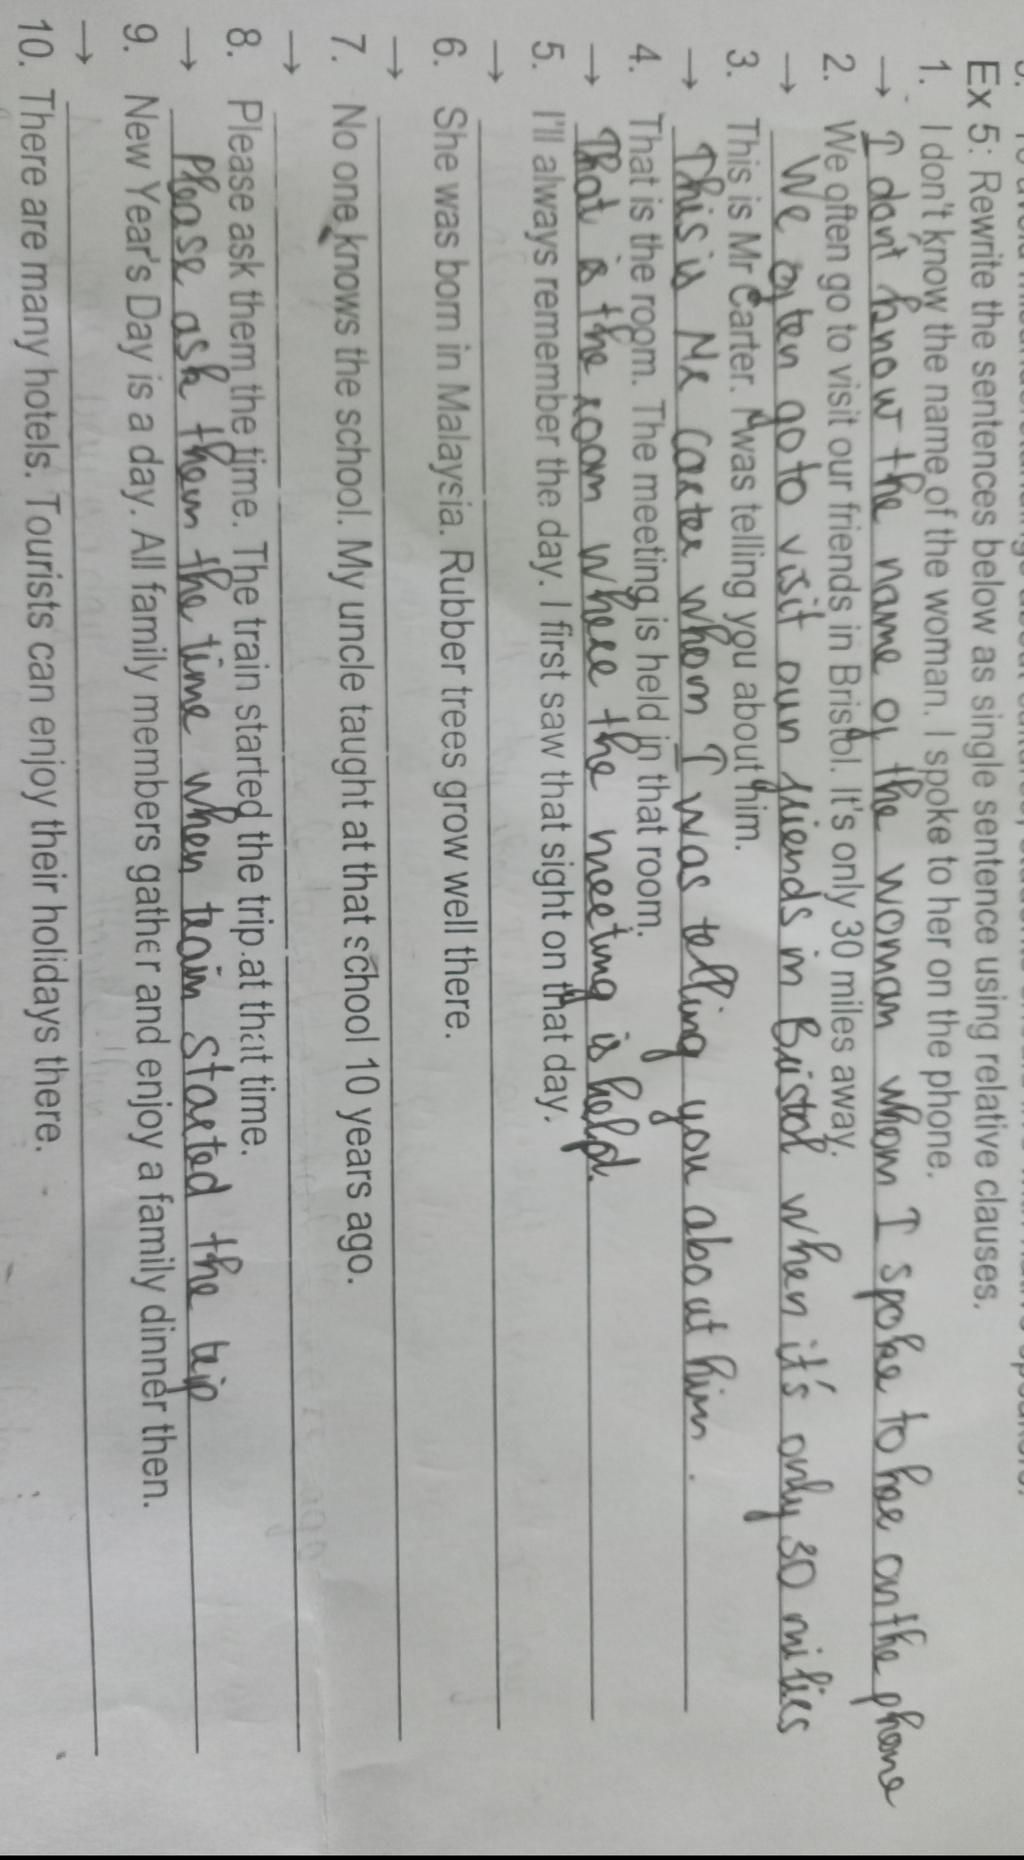 Ex 5: Rewrite the sentences below as single sentence using relative clauses.
1. I don't know the name of the woman. I spoke to her on the phone.
→ I don't know the name of the woman whom I spoke to her on the phone
2. We often go to visit our friends in Bristol. It's only 30 miles away.
→ We often go to visit our friends in Bristol when it's only 30 milies
3. This is Mr Carter. I was telling you about him.
→ This is Mr Carter whom I was telling you about him.
4. That is the room. The meeting is held in that room.
→ That is the room whee the meeting is held.
5. I'll always remember the day. I first saw that sight on that day.
→
6. She was born in Malaysia. Rubber trees grow well there.
→
7. No one knows the school. My uncle taught at that school 10 years ago.
→
8. Please ask them the time. The train started the trip at that time.
→ Please ask them the time when train started the trip
9. New Year's Day is a day. All family members gather and enjoy a family dinner then.
→
10. There are many hotels. Tourists can enjoy their holidays there.